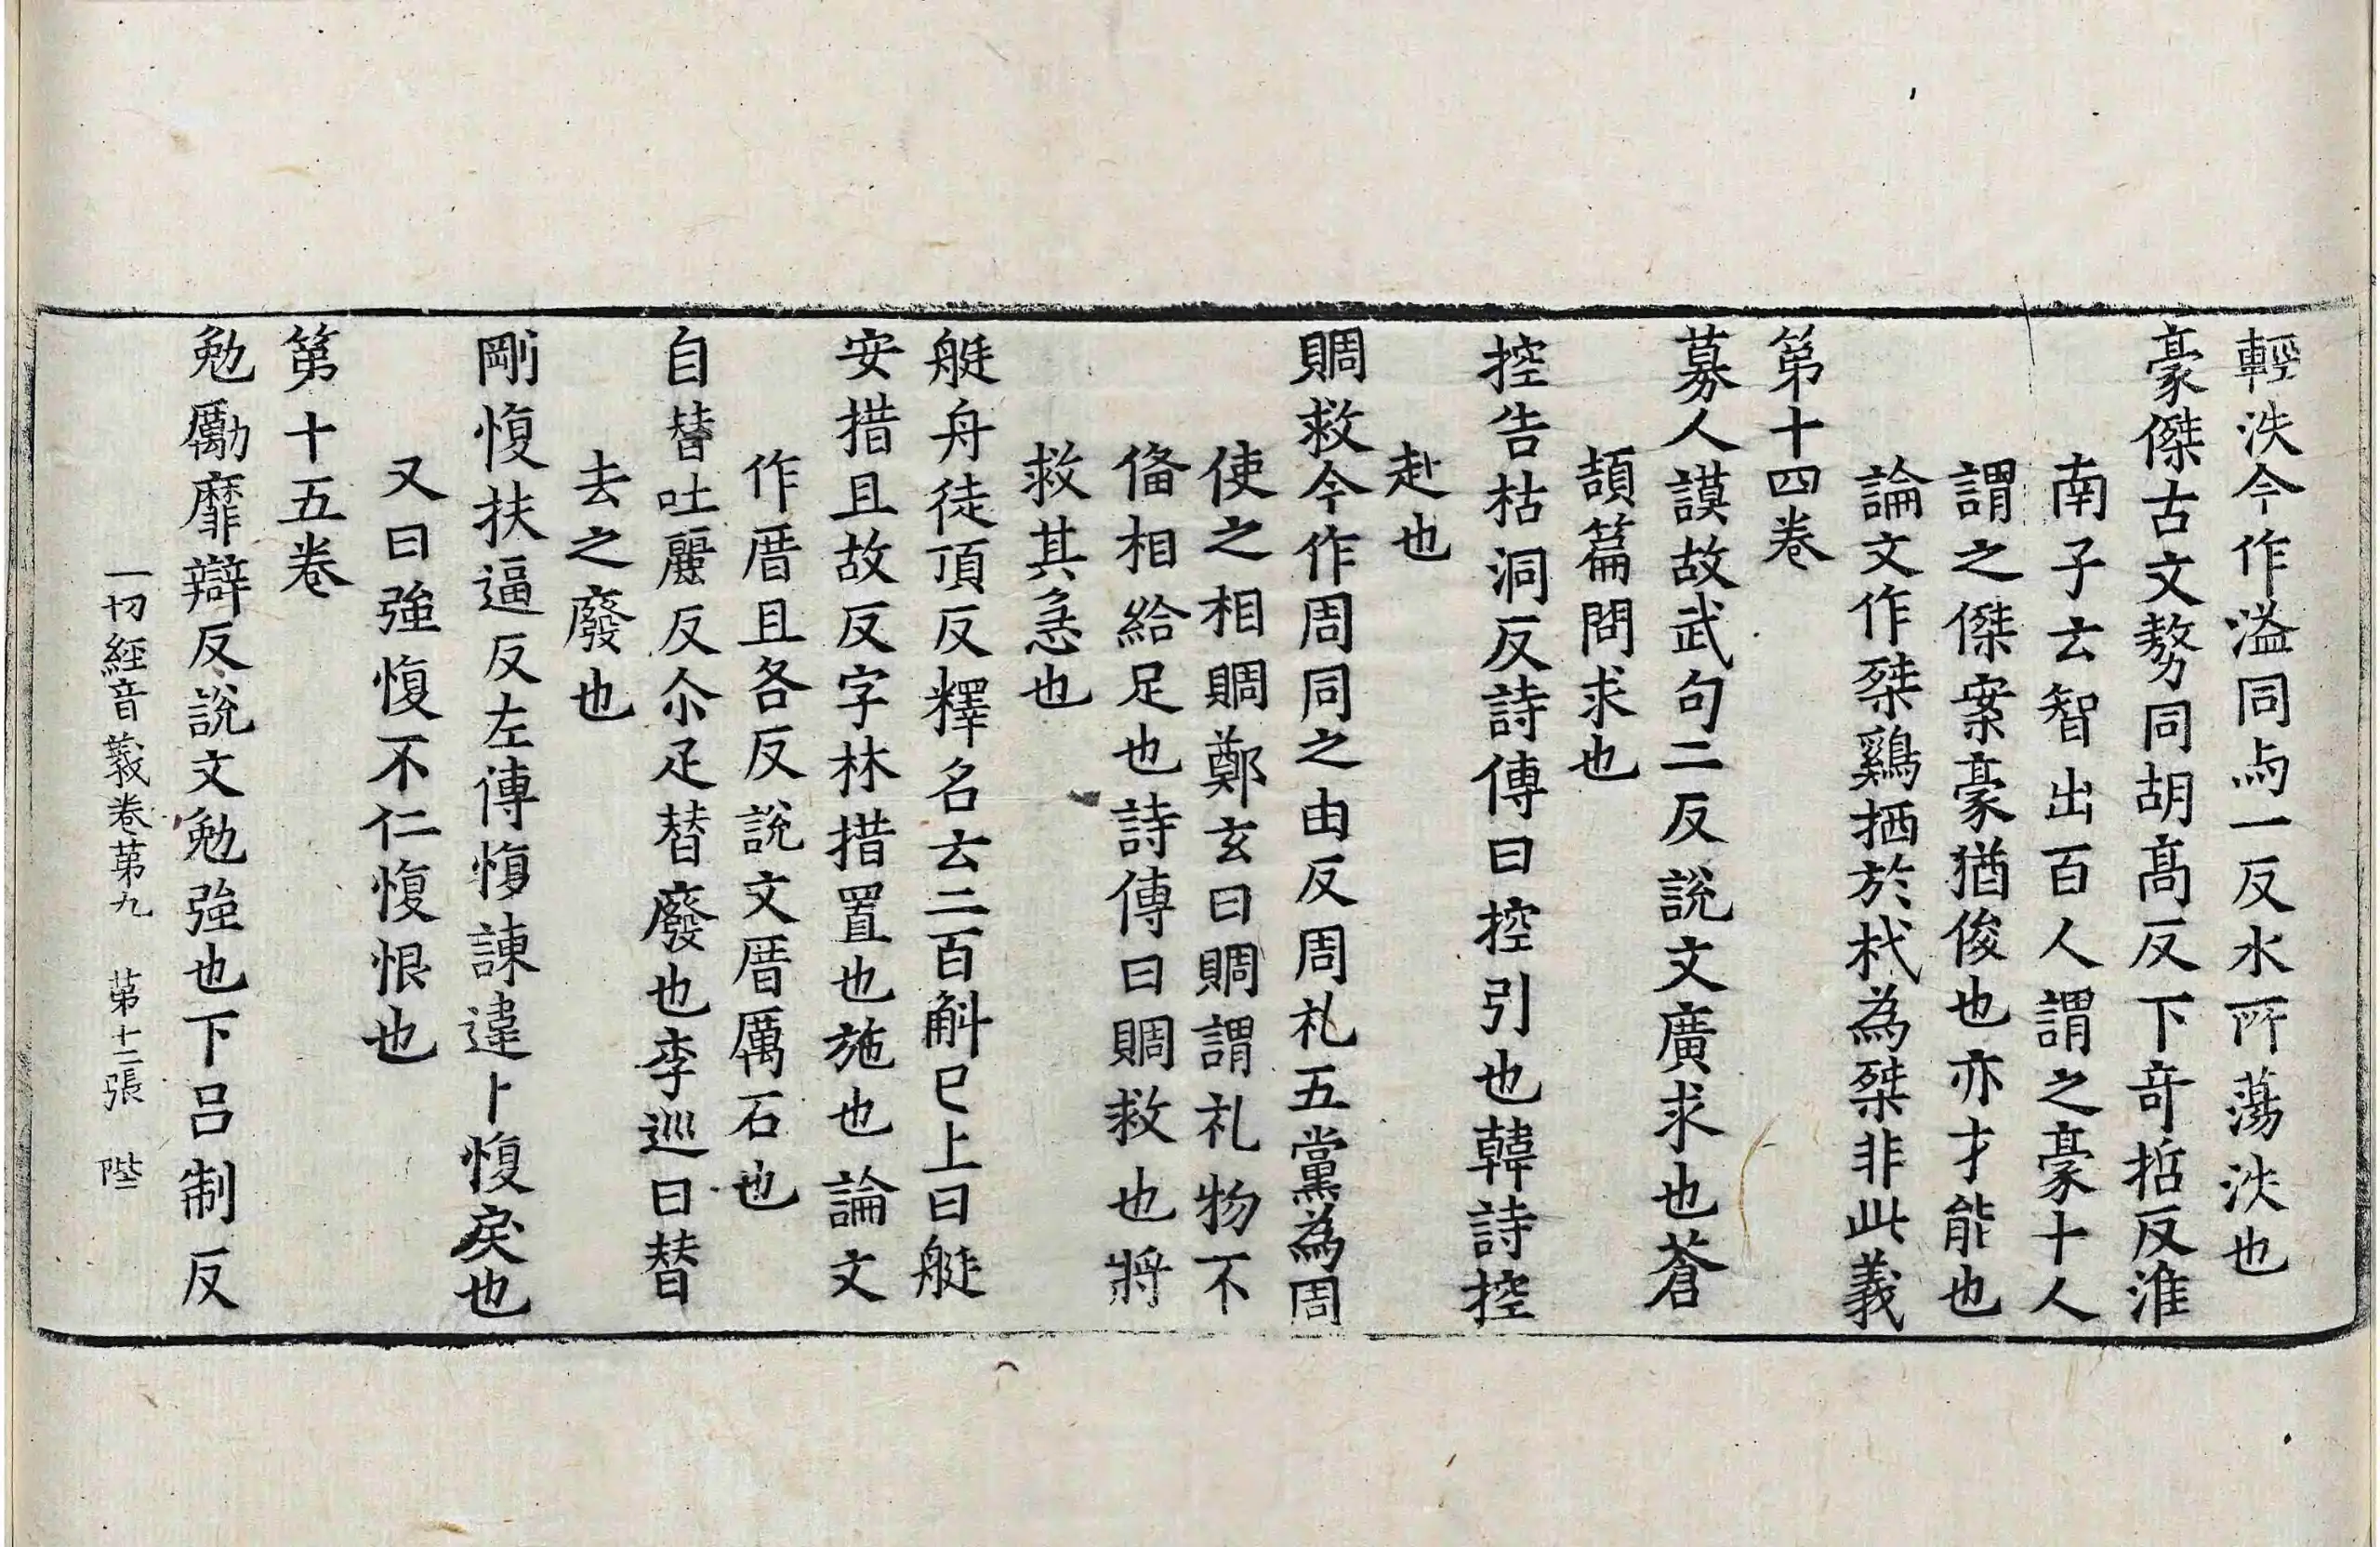 輕泆今作溢同与一反水所蕩泆也
豪傑古文勢同胡髙反下竒哲反淮
南子云智出百人謂之豪十人
謂之傑案豪猶俊也亦才能也
論文作桀鷄栖於杙為桀非此義
苐十四卷
募人謨故武句二反說文廣求也蒼
頡篇問求也
控告枯洞反詩傳曰控引也韓詩控
赴也
賙救今作周同之由反周礼五黨為周
使之相賙鄭玄曰賙謂礼物不
俻相給足也詩傳曰賙救也將
救其急也
艇舟徒頂反釋名云二百斛已上曰艇
安措且故反字林措置也施也論文
作厝且各反說文厝厲石也
自替吐麗反尒疋替廢也李巡曰替
去之廢也
剛愎扶逼反左傳愎諫違卜愎戾也
又曰強愎不仁愎恨也
苐十五卷
勉勵靡辯反說文勉強也下呂制反
一切經音義卷苐九 苐十二張 陛